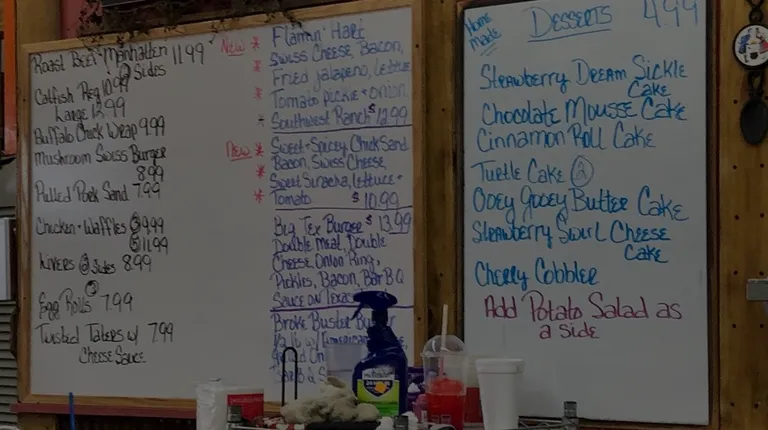 Roast Beef Manhatten 11.99
② Sides
Catfish Reg 10.99
Large 12.99
Buffalo Chick Wrap 9.99
Mushroom Swiss Burger
8.99
Pulled Pork Sand 7.99
Chicken + Waffles 9.99
11.99
Livers ② Sides 8.99
Egg Rolls 7.99
Twisted Taters w/ 7.99
Cheese Sauce
New * Flamin' Hart
* Swiss Cheese, Bacon,
Fried jalapeno, lettuce
* Tomato pickle + onion,
* Southwest Ranch $12.99
New * Sweet + Spicey Chick Sand
* Bacon, Swiss Cheese,
Sweet Siracha, lettuce +
* Tomato $10.99
Big Tex Burger $13.99
Double meat, Double
Cheese, Onion Ring,
Pickles, Bacon, Bar B Q
Sauce on Texas
Broke Buster
1/2 lb w/ American
Home
Made
Desserts 4.99
Strawberry Dream Sickle
Cake
Chocolate Mousse Cake
Cinnamon Roll Cake
Turtle Cake ②
Ooey Gooey Butter Cake
Strawberry Swirl Cheese
Cake
Cherry Cobbler
Add Potato Salad as
a side